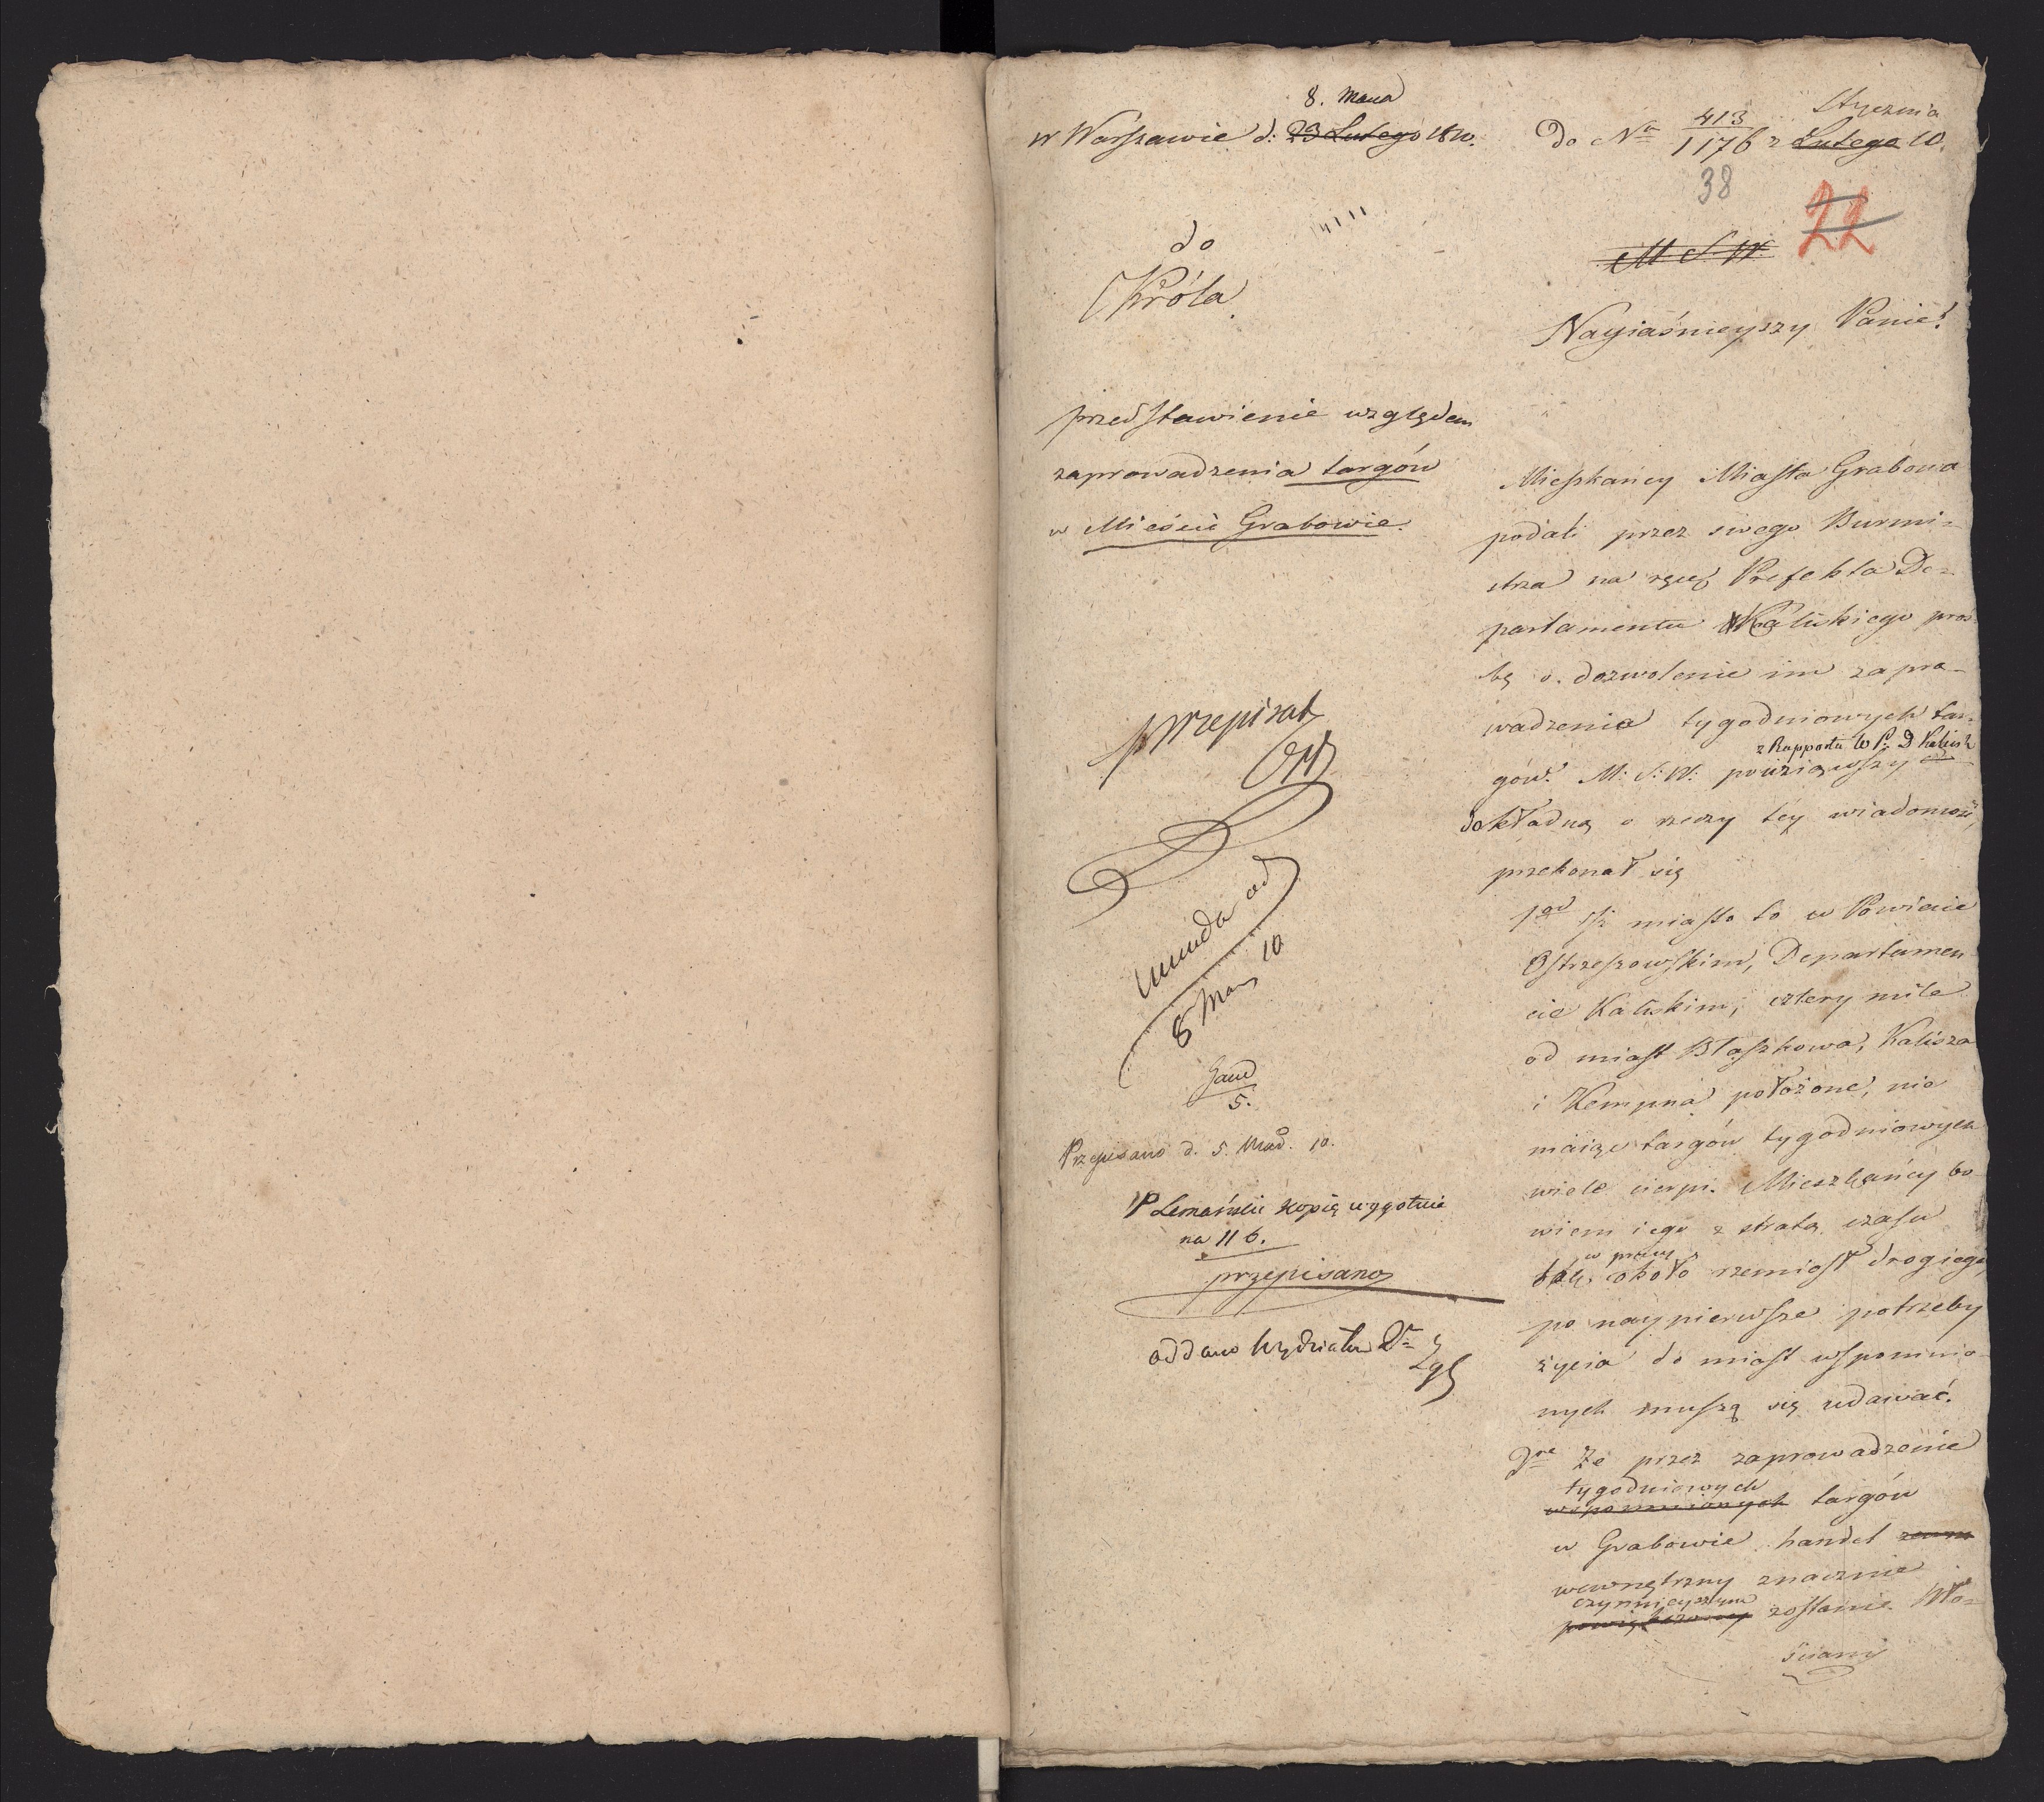 8. Marca
w Warszawie d: 23 Lutego 1810.
do
Króla
przedstawienie względem
zaprowadzenia targów
w Mieście Grabowie.
przepisał
Munda ad
8 Mar 10
5.
Przepisano d. 5. Mar. 10.
P Lemański kopię wygotuie
na 11 b.
przepisano
oddano Wydziału
Stycznia
Do Nr 413
1176 z Lutego 10.
38
22
M. S. W.
Nayiaśnieyszy Panie!
Mieszkańcy Miasta Grabowa
podali przez swego Burmi-
strza na ręce Prefekta De-
partamentu Kaliskiego proś-
bę o dozwolenie im zapro-
wadzenia tygodniowych tar-
z Rapportu P. D Kalisk
gów. M: S: W: powziąwszy
dokładną o rzeczy tey wiadomość,
przekonał się
1od Iż miasto to w Powiecie
Ostrzeszowskim, Departamen-
cie Kaliskim, cztery mile
od miast Błaszkowa, Kalisza
i Kempna położone, nie
maiąc targów tygodniowych
wiele cierpi. Mieszkańcy bo-
wiem iego z stratą czasu
w pracy
około rzemiosł drogiego,
po naypierwsze potrzeby
życia do miast wspomnio-
nych muszą się udawać.
2re Że przez zaprowadzenie
tygodniowych
wspomnionych targów
w Grabowie handel
wewnętrzny znacznie
czynnieyszym
powiększony zostanie. Wło-
ścianie